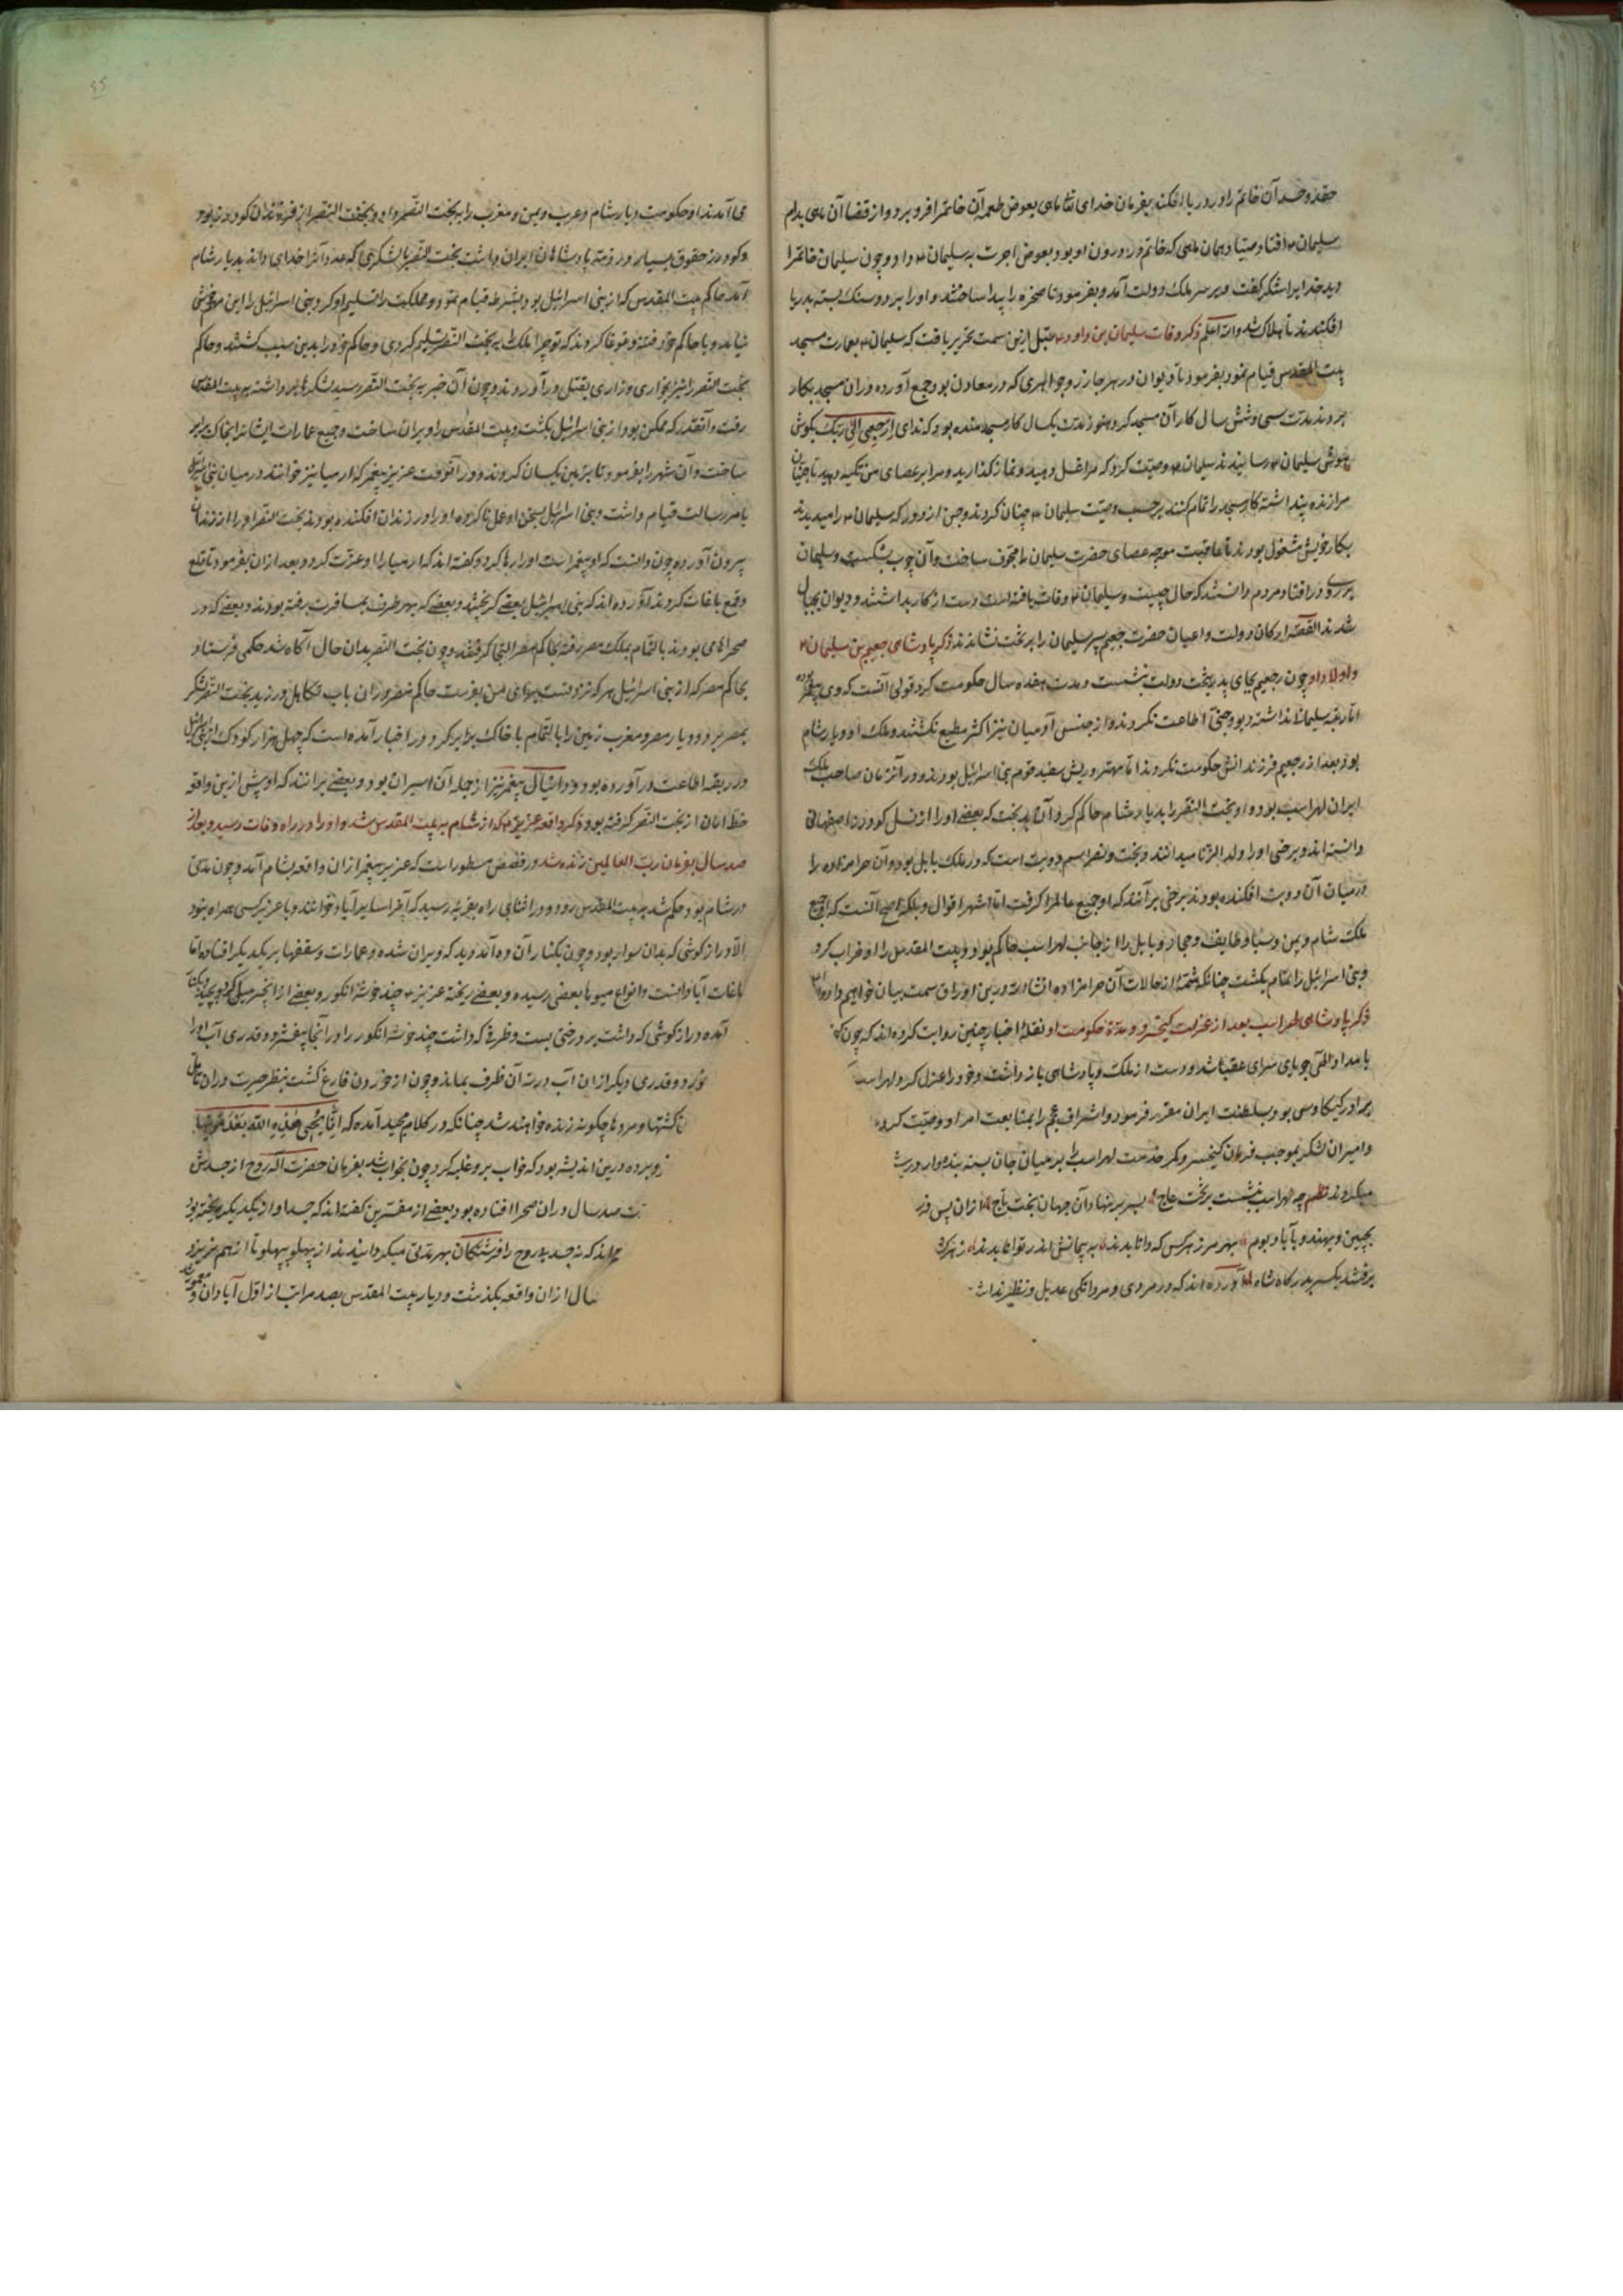 حقد و حسد آن خاتم را در دریا افکند بفرمان خدای تعالی ماهی بعوض طعمه آن خاتم را فرو برد و از قضا آن ماهی بدام
سلیمان افتاد و همان ماهی که خاتم در درون او بود بعوض اجرت به سلیمان داد و چون سلیمان خاتم را
دید خدایرا شکر گفت و بر سر ملک و دولت آمد و بفرمود تا صخره را پیدا ساختند و او را بر دو سنک بسته بدریا
افکندند تا هلاک شد والله اعلم ذکر وفات سلیمان بن داود قبل ازین سمت تحریر یافت که سلیمان بعمارت مسجد
بیت المقدس قیام نمود بفرمود تا دیوان در هر جا زر و جواهری که در معادن بود جمع آورده در آن مسجد بکار
بردند مدت سی و شش سال کار آن مسجد کرد هنوز مدت یکسال کار مسجد مانده بود که ندای ارجعی الی ربک بگوش
هوش سلیمان رسانیدند سلیمان وصیت کرد که مرا غسل دهید و نماز گذارید و مرا بر عصای من تکیه دهید تا جنیان
مرا زنده پنداشته کار مسجد را تمام کنند بر حسب وصیت سلیمان چنان کردند و جن از دور که سلیمان را میدیدند
بکار خویش مشغول بودند تا عاقبت مورچه عصای حضرت سلیمان را مجوف ساخت و آن چوب بشکست و سلیمان
بر روی در افتاد مردم دانستند که حال چیست و سلیمان وفات یافته است دست از کار بداشتند و دیوان بجبال
شدند القصه ارکان دولت و اعیان حضرت رجعیم پسر سلیمان را بر تخت نشاندند ذکر پادشاهی رجعیم بن سلیمان
و اولاد او چون رجعیم بجای پدر بتخت دولت بنشست و مدت هفده سال حکومت کرد قولی آنست که وی پیغمبر بود
اما رتبه سلیمان نداشت دیو و جنی اطاعت نکردند و از جنس آدمیان نیز اکثر مطیع نکشتند و ملک او دیار شام
بود بعد از رجعیم فرزندانش حکومت نکردند اما مهتر و ریش سفید قوم بنی اسرائیل بودند و در آنزمان صاحب ملک
ایران لهراسب بود و او بخت النصر را بدیار شام حاکم کرد و آن بدبخت که بعضی او را از نسل کودرز اصفهانی
دانسته اند و برخی او را ولد الزنا میدانند و بخت و نصر اسم دو بت است که در ملک بابل بود و آن حرامزاده را
در میان آن دو بت افکنده بودند برخی بر آنند که او جمیع عالم را کرفت اما اشهر اقوال و بلکه اصح آنست که او جمیع
ملک شام و یمن و سبا و طایف و حجاز و بابل را از جانب لهراسب حاکم بود و بیت المقدس را او خراب کرد
و بنی اسرائیل را تمام بکشت چنانکه شمه از حالات آن حرامزاده انشاءالله درین اوراق سمت بیان خواهیم داد
ذکر پادشاهی لهراسب بعد از عزلت کیخسرو و مدة حکومت او نقله اخبار چنین روایت کرده اند که چون
بامداد الهی جویای سرای عقبی شد و دست از ملک و پادشاهی باز داشت و خود را عزل کرد لهراسب
برادر کیکاوس بود بسلطنت ایران مقرر فرمود و اشراف عجم را بمتابعت امر او وصیت کرد
و امیران لشکر بموجب فرمان کیخسرو کمر خدمت لهراسب بر میان جان بسته بنده وار ورزش
میکردند نظم چه لهراسب بنشست بر تخت عاج بسر بر نهاد آن جهان بخت تاج ازان پس
بچین و بهند و بآباد بوم بهر مرز هر کس که دانا بدند به پیمانش اندر توانا بدند ز هر کش
برفتند یکسر بدرکاه شاه آورده اند که در مردی و مردانکی عدیل و نظیر نداشت
می آمدند او حکومت دیار شام و عرب و یمن و مغرب را به بخت النصر داد و بخت النصر از فرزندان کودرز بود
و کودرز حقوق بسیار در ذمه پادشاهان ایران داشت بخت النصر با لشکری که عدد آنرا خدای داند بدیار شام
آمد حاکم بیت المقدس که از بنی اسرائیل بود بشرط قیام نمود و مملکت را تسلیم او کرد بنی اسرائیل را این خوش
نیامد و با حاکم خود فتنه و غوغا کردند که تو چرا ملک به بخت النصر تسلیم کردی و حاکم خود را بدین سبب کشتند و حاکم
بخت النصر را نیز بخواری و زاری بقتل در آوردند و چون آن خبر به بخت النصر رسید لشکرها برداشته به بیت المقدس
رفت و آنقدر که ممکن بود از بنی اسرائیل بکشت و بیت المقدس را ویران ساخت و جمیع عمارات ایشانرا بخاک برابر
ساخت و آن شهر را بفرمود تا بزمین یکسان کردند و در آنوقت عزیز پیغمبر که ارمیا نیز خوانند در میان بنی اسرائیل
بامر رسالت قیام داشت و بنی اسرائیل بسخن او عمل ناکرده او را در زندان افکنده بودند بخت النصر او را از زندان
بیرون آورده چون دانست که او پیغمبر است او را رها کرد و کفته اند که ارمیا را او عزت کرد و بعد ازان بفرمود تا قلع
و قمع باغات کردند آورده اند که بنی اسرائیل بعضی کریختند و بعضی که بهر طرف بمسافرت رفته بودند و بعضی که در
صحراها می بودند بالتمام بملک مصر رفته بحاکم مصر التجا کرفتند و چون بخت النصر بدان حال آکاه شد حکمی فرستاد
بحاکم مصر که از بنی اسرائیل هر که نزد تست بسوی من بفرست حاکم مصر در ان باب تکاهل ورزید بخت النصر لشکر
بمصر برد و دیار مصر و مغرب زمین را بالتمام با خاک برابر کرد و در اخبار آمده است که چهل هزار کودک از بنی اسرائیل
در ربقه اطاعت در آورده بود و دانیال پیغمبر نیز از جمله آن اسیران بود و بعضی برانند که او پیش ازین واقعه
خط امان از بخت النصر کرفته بود ذکر واقعه عزیز که از شام به بیت المقدس شد و او را در راه وفات رسید و بعد از
صد سال بفرمان رب العالمین زنده شد در قصص مسطور است که عزیز پیغمبر ازان واقعه بشام آمد و چون مدتی
در شام بود حکم شد به بیت المقدس رود و در اثنای راه بقریه رسید که آنرا سایرآباد خوانند و با عزیز کسی همراه نبود
الا درازکوشی که بدان سوار بود و چون بکنار آن ده آمد دید که ویران شده و عمارات و سقفها بر یکدیکر افتاده اما
باغات آبادانست و انواع میوها بعضی رسیده و بعضی ریخته عزیز چند خوشه انکور و بعضی از انجیر
آمده درازکوشی که داشت بر درختی بست و ظرفی که داشت چند خوشه انکور را در آنجا بیفشرد و قدری آب او را
خورد و قدری دیکر ازان آب در ته آن ظرف بماند و چون از خوردن فارغ کشت بنظر حیرت در ان
کشتها و مردها چکونه زنده خواهند شد چنانکه در کلام مجید آمده که انی یحیی هذه الله بعد موتها
فرو برده درین اندیشه بود که خواب برو غلبه کرد چون بخواب شد بفرمان حضرت اله روح از جسدش
صد سال در ان صحرا افتاده بود بعضی از مفسرین کفته اند که جسد او از یکدیکر ریخته بود
اند که نه جسد بیروح را فرشتکان بهر مدتی میکردانیدند از پهلو بپهلو تا از هم نریزد
سال از ان واقعه بکذشت و دیار بیت المقدس بصد مراتب از اول آبادان و معمور شد